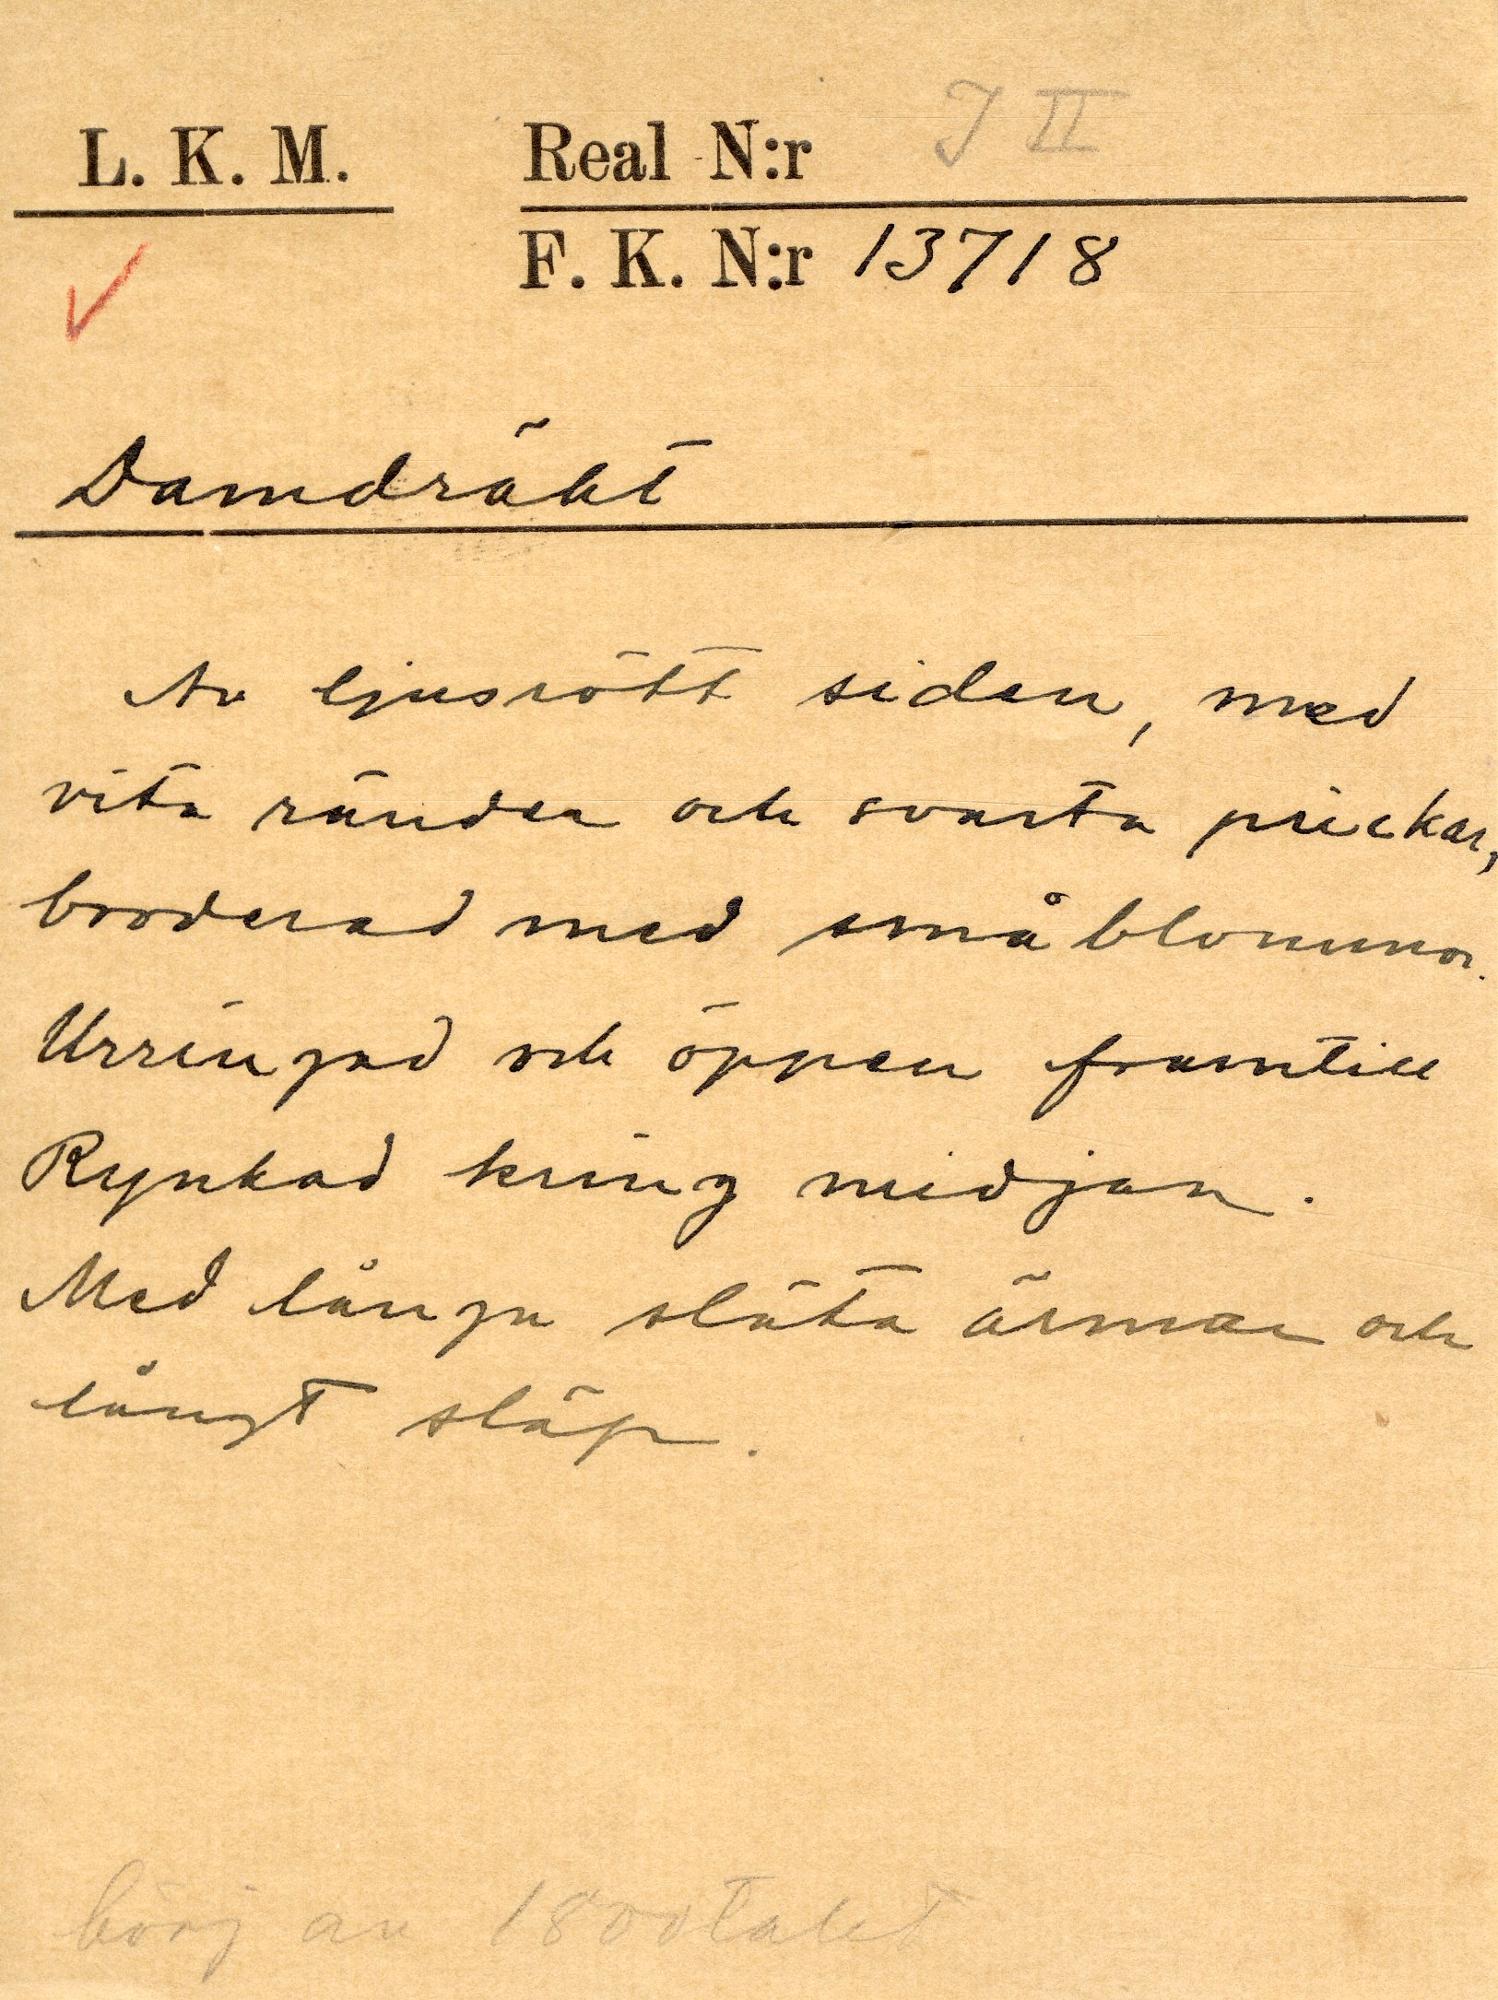 L. K. M. Real N:r J II
F. K. N:r 13718
Damdräkt
Av ljusrött siden, med
vita ränder och svarta prickar,
broderad med små blommor.
Urringad och öppen framtill
Rynkad kring midjan.
Med långa släta ärmar och
långt släp.
börj av 1800talet